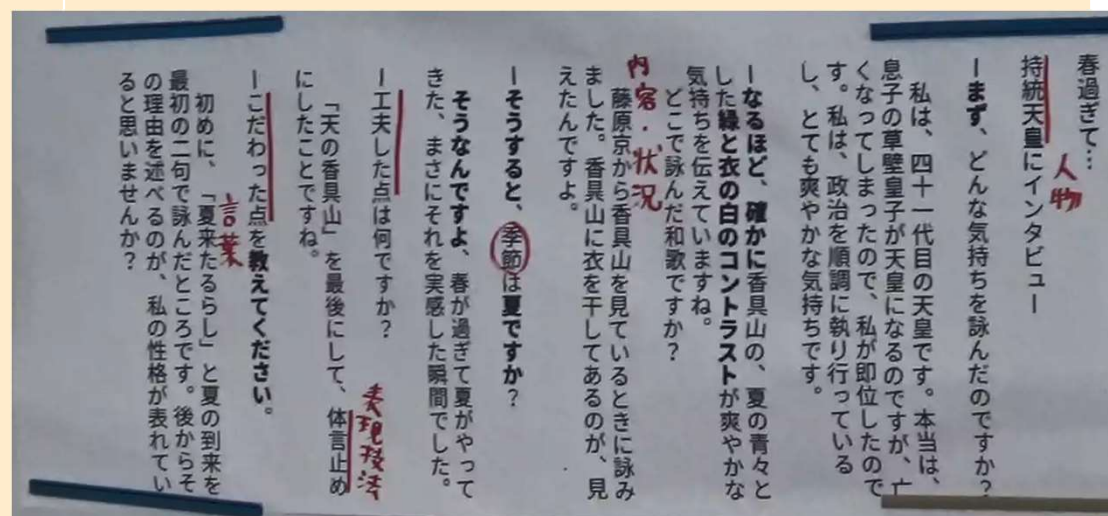 春過ぎて…
持統天皇にインタビュー
人物
ーまず、どんな気持ちを詠んだのですか？
私は、四十一代目の天皇です。本当は、
息子の草壁皇子が天皇になるのですが、亡
くなってしまったので、私が即位したので
す。私は、政治を順調に執り行っている
し、とても爽やかな気持ちです。
ーなるほど、確かに香具山の、夏の青々と
した緑と衣の白のコントラストが爽やかな
気持ちを伝えていますね。
どこで詠んだ和歌ですか？
内容・状況
藤原京から香具山を見ているときに詠み
ました。香具山に衣を干してあるのが、見
えたんですよ。
ーそうすると、季節は夏ですか？
そうなんですよ、春が過ぎて夏がやって
きた、まさにそれを実感した瞬間でした。
ー工夫した点は何ですか？
表現技法
「天の香具山」を最後にして、体言止め
にしたことですね。
ーこだわった点を教えてください。
言葉
初めに、「夏来たるらし」と夏の到来を
最初の二句で詠んだところです。後からそ
の理由を述べるのが、私の性格が表れてい
ると思いませんか？